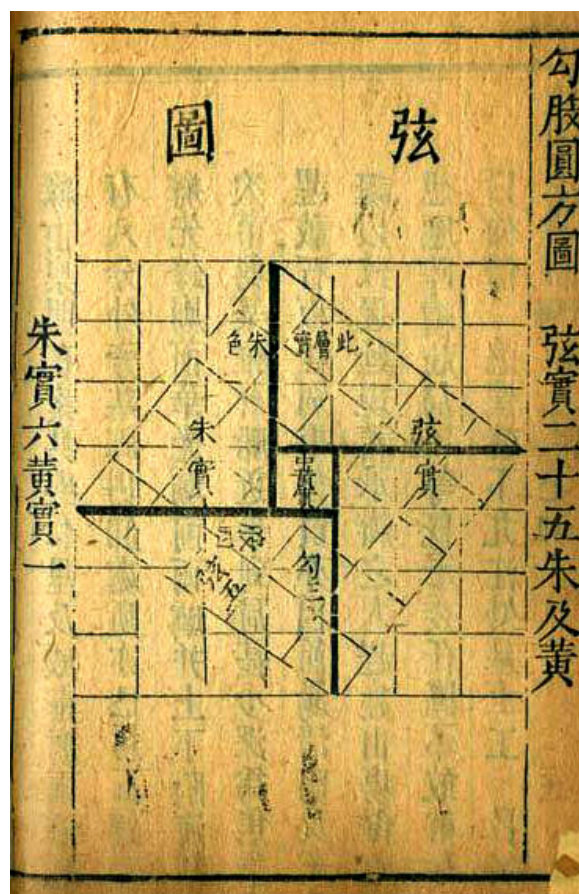 勾股圓方圖
弦實二十五朱及黃
弦圖
此層實朱色
弦實
朱實
中黃實
勾三
弦五
朱實六黃實一